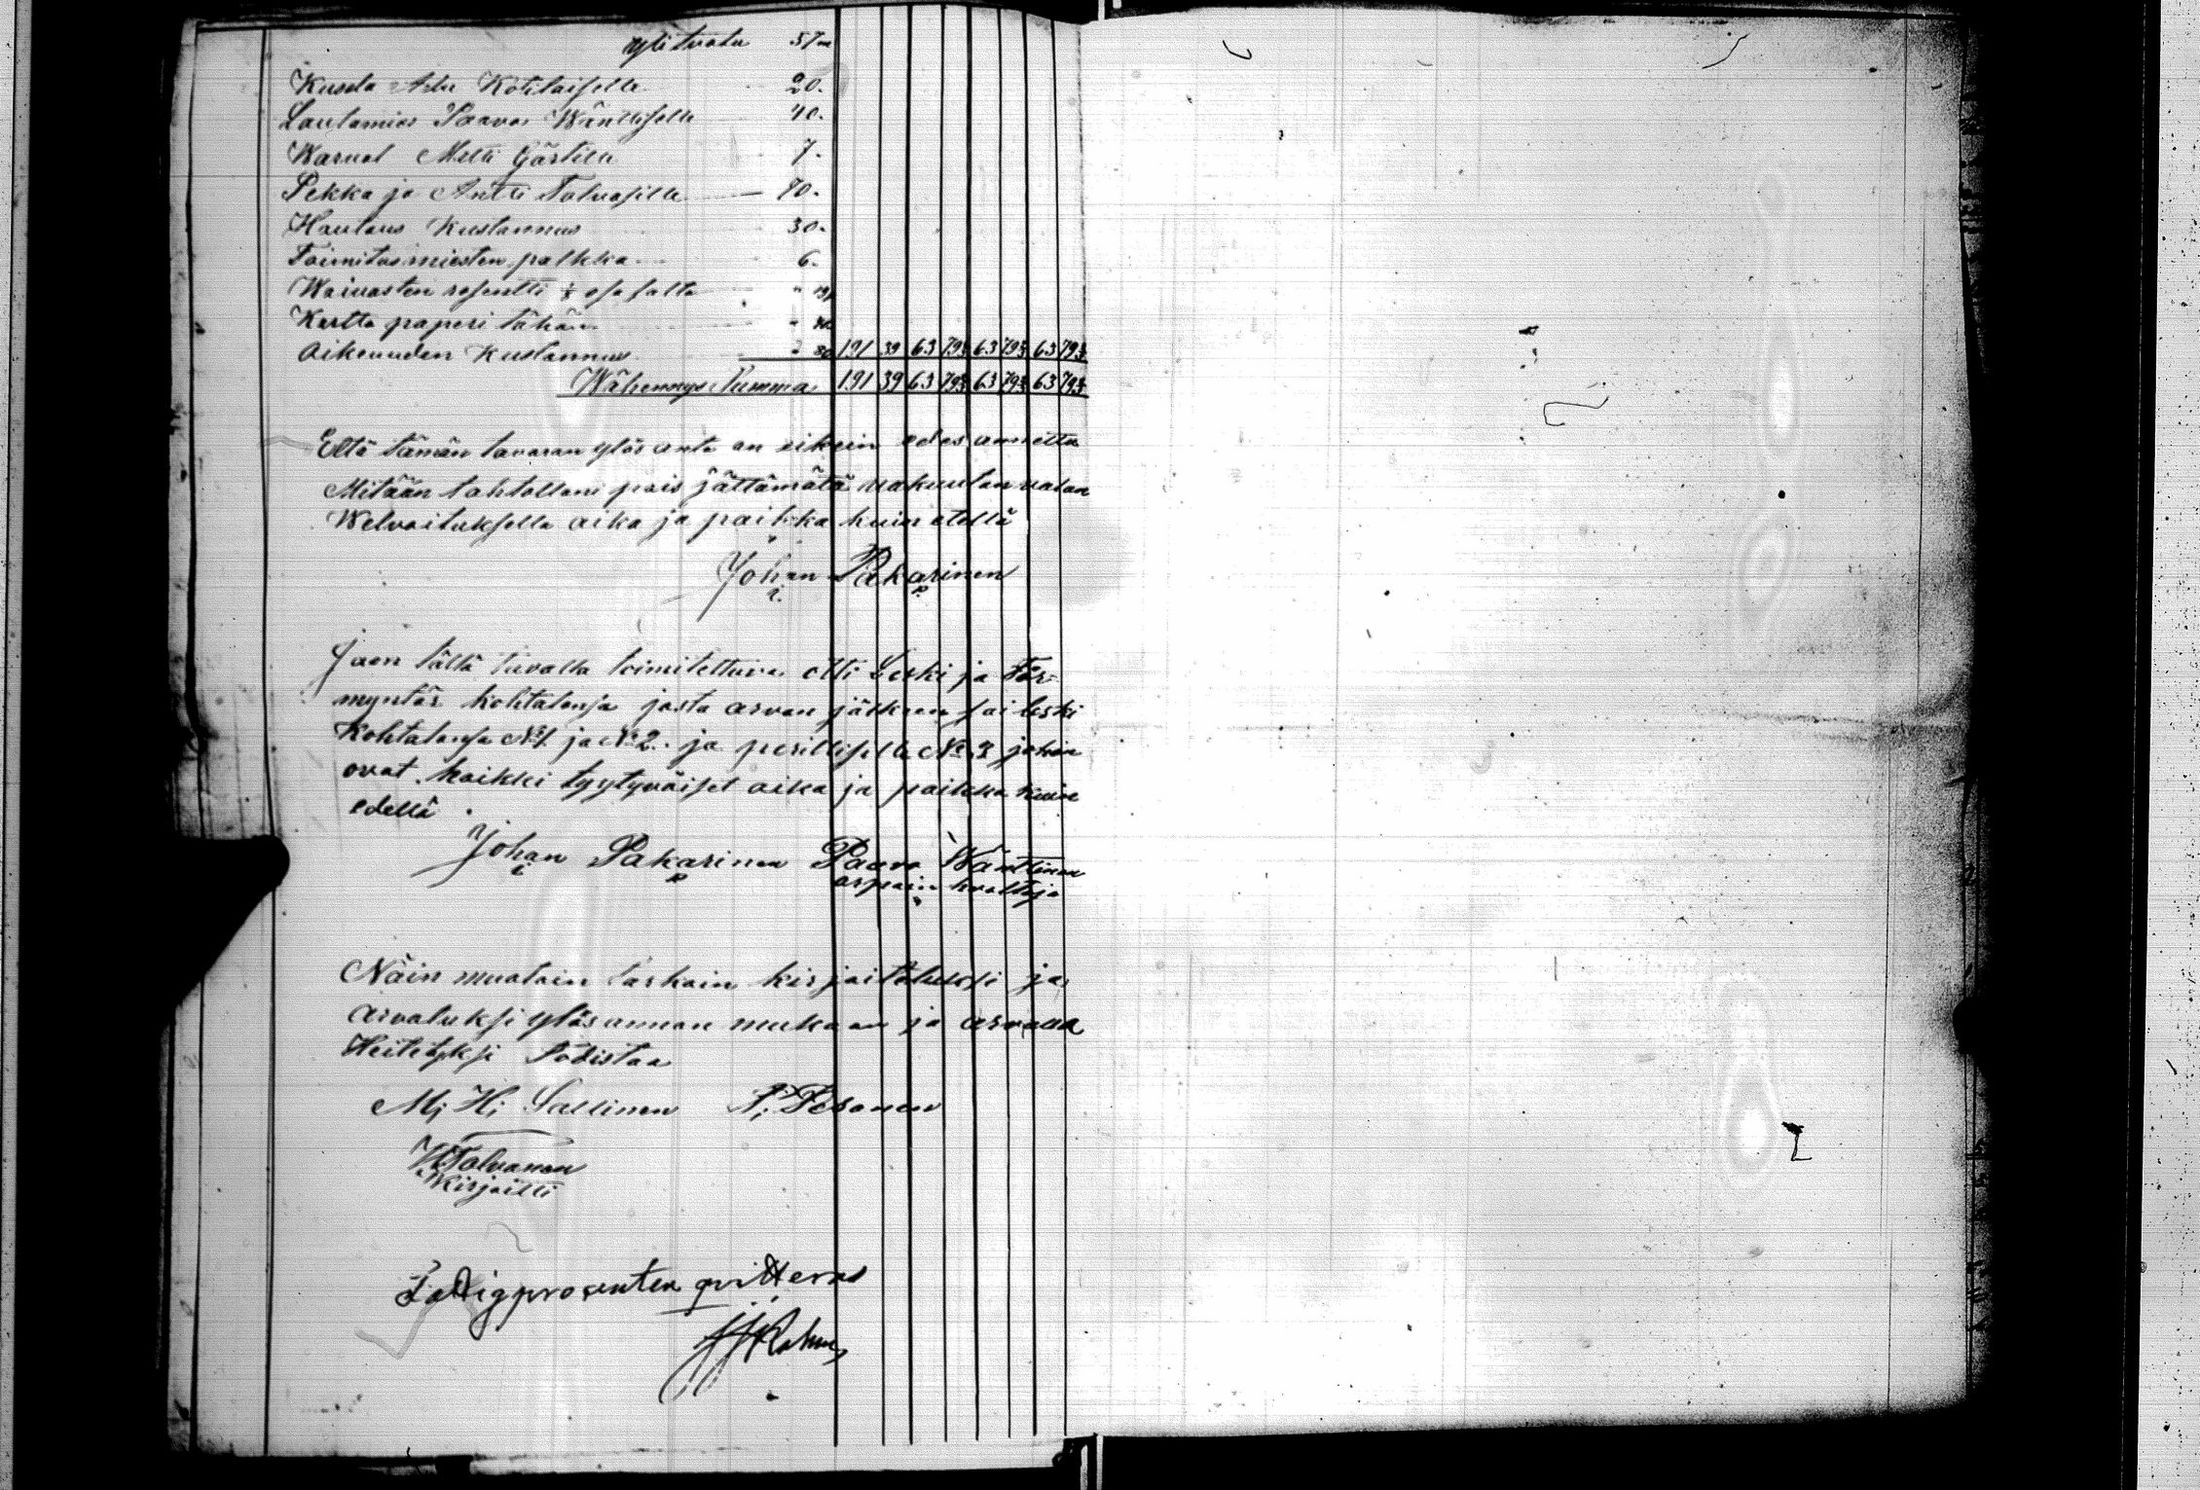 ylituatu 57 "
Kusela Atu Kotilaiselle 20 "
Lautamies Paavo Wänttiselle 40 "
Warnat Matti Gästille 7 "
Pekka ja Antti Tolvasille 10 "
Hautaus Kustannus 30 "
Toimitus miesten palkka 6 "
Waivasten rosentti ⅛ osasalta "
Kartta paperi tähän "
Oikeuden Kustannus 2 80 191 39 63 79⅔ 63 79⅔ 63 79⅔
Wähennys Summa 191 39 63 79⅔ 63 79⅔ 63 79⅔
Että tämän tavaran ylös anto on oikein edes annettu
Mitään tahtollani pois jättämätä vakuutan valan
Welvoituksella aika ja paikka kuin etellä
Johan Pakarinen
Jaon tällä tavalla toimitettua otti Leski ja För=
myntär kohtalonsa josta arvan jälkeen sai leski
Kohtalonsa No 1. ja No 2. ja perilliselle No 3 johon
ovat kaikki tyytyväiset aika ja paikka kuin
edellä
Johan Pakarinen Paavo Wänttinen
arpain holttoja
Näin muatoin tarkoin kirjoitetuksi ja
arvatuksi ylösannon mukaan ja arvaua
Heitetyksi todistaa
M; H; Sallinen P; Pesonen
W Tolvanen
Kirjoitti
Fattigprosenten qvitteras